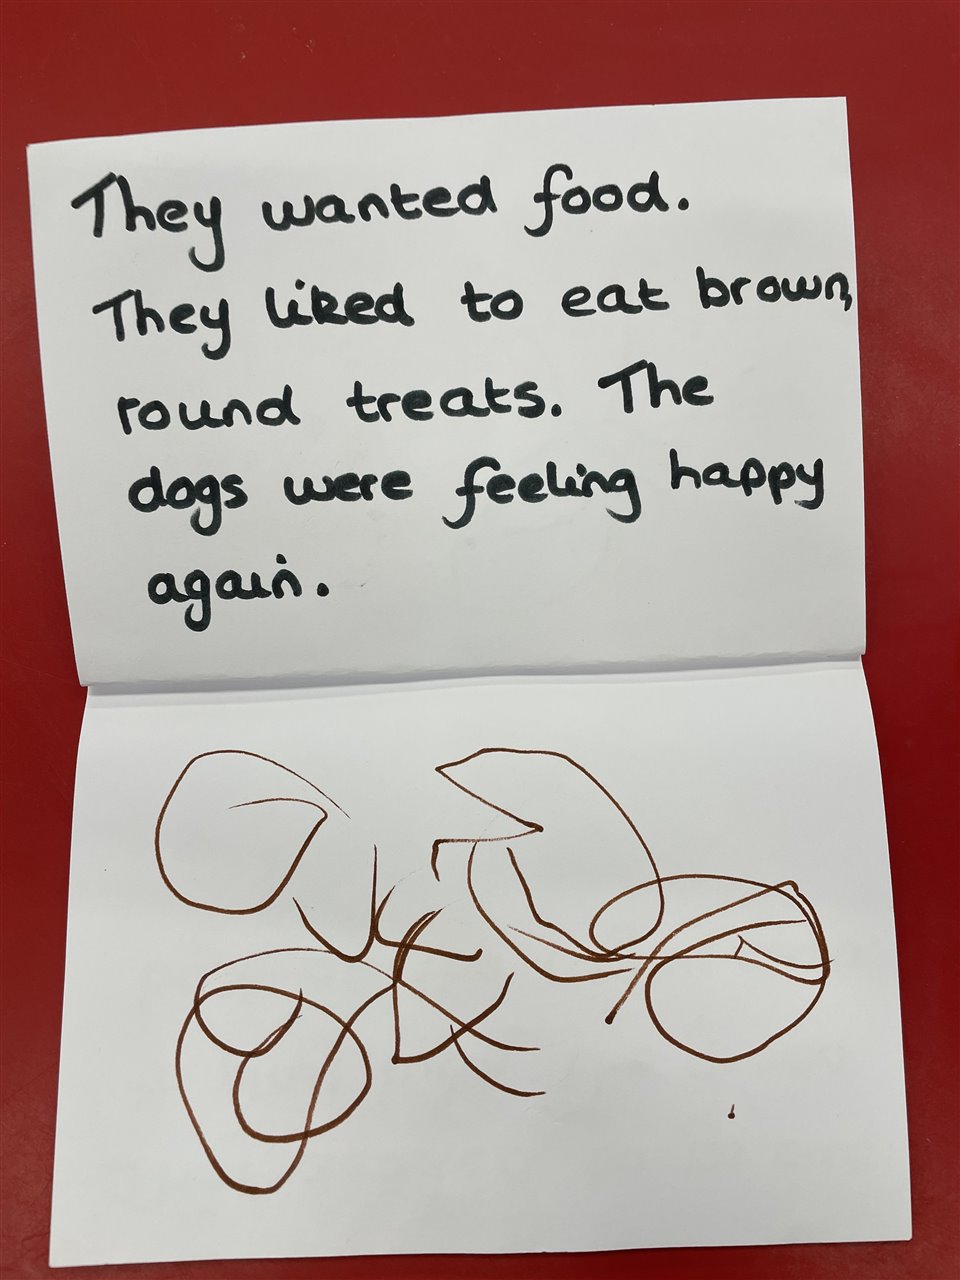 They wanted food.
They liked to eat brown,
round treats. The
dogs were feeling happy
again.